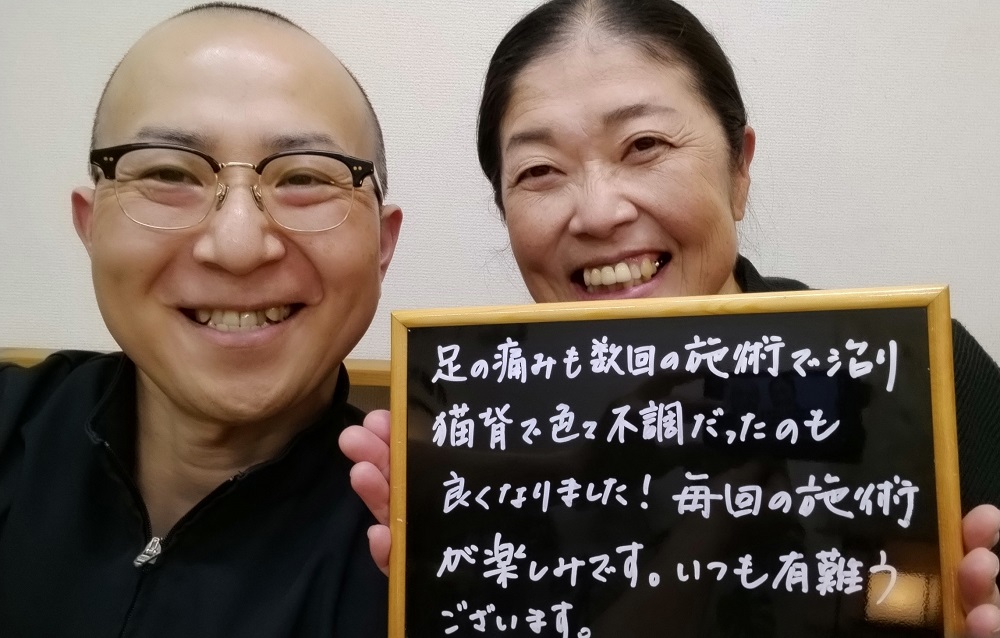 足の痛みも数回の施術で治り
猫背で色々不調だったのも
良くなりました！毎回の施術
が楽しみです。いつも有難う
ございます。